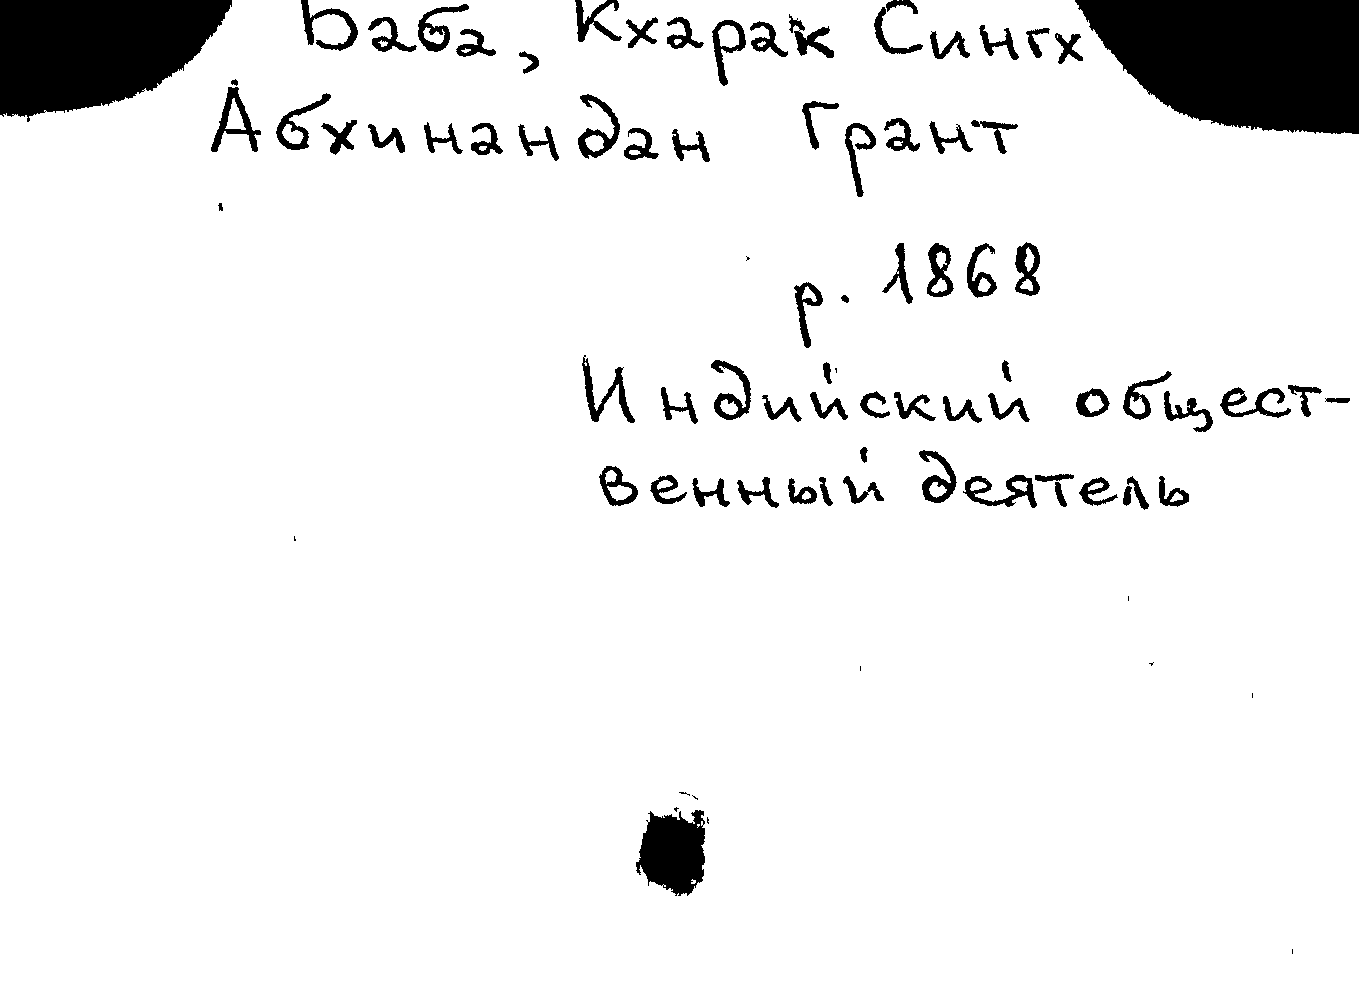 Баба, Кхарак Сингх
Абхинандан Грант
р. 1868
Индийский общест-
венный деятель